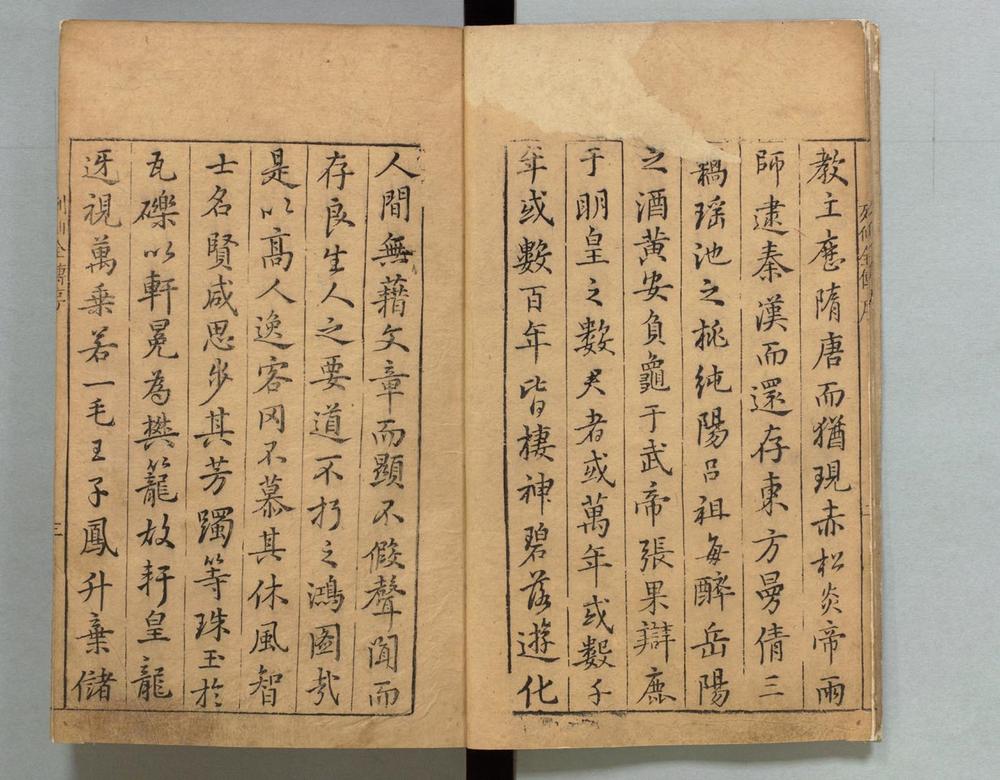 教主應隋唐而猶現赤松炎帝雨
師逮秦漢而還存東方曼倩三
竊瑶池之桃純陽呂祖每醉岳陽
之酒黄安負龜于武帝張果辯鹿
于明皇之數夫者或萬年或數千
年或數百年皆棲神碧落遊化
人間無藉文章而顯不假聲聞而
存良生人之要道不朽之鴻圖哉
是以高人逸客罔不慕其休風智
士名賢咸思步其芳躅等珠玉於
瓦礫以軒冕為樊籠故軒皇龍
迓視萬乗若一毛王子鳳升棄儲
列仙全傳序